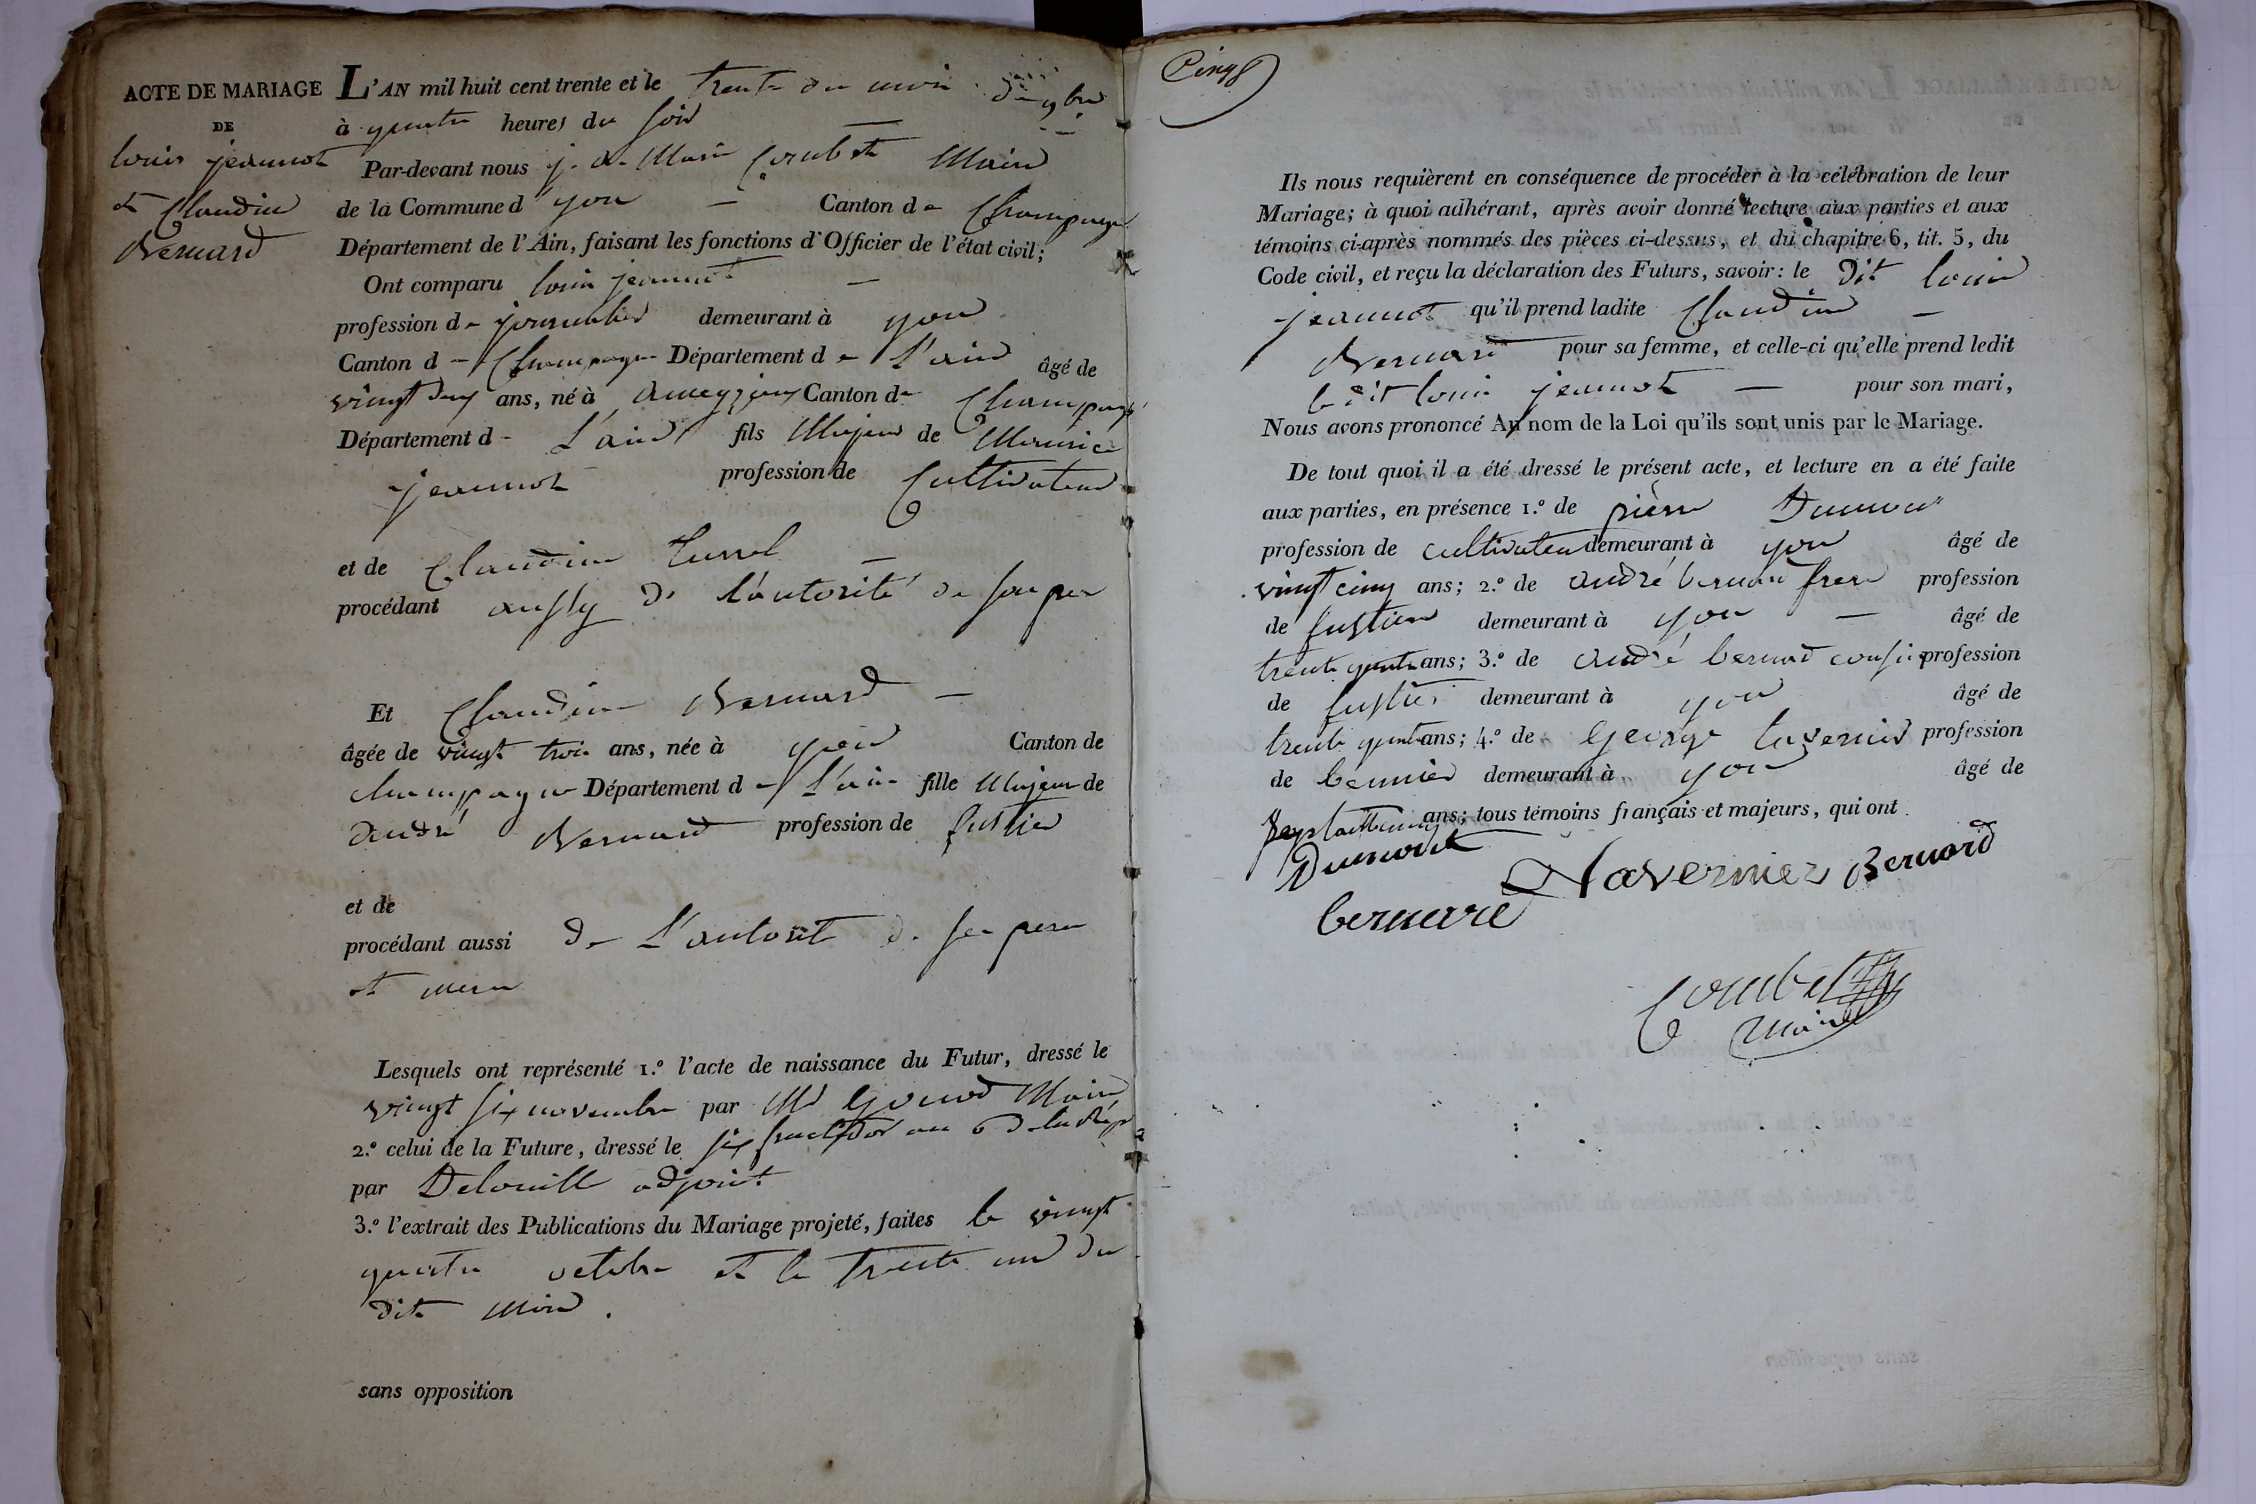 ACTE DE MARIAGE
DE
louis jeannot
et Claudine
Bernard
L'AN mil huit cent trente et le trente du mois de 9bre
à quatre heures du soir
Par-devant nous j. a. Marie Combet Maire
de la Commune d'yon — Canton de Champagne
Département de l'Ain, faisant les fonctions d'Officier de l'état civil;
Ont comparu louis jeannot —
profession de journalier demeurant à yon
Canton de Champagne Département de L'ain âgé de
vingt deux ans, né à ameyzieux Canton de Champagne
Département de L'ain fils Majeur de Maurice
jeannot profession de Cultivateur
et de Claudine —
procédant aussy de l'autorité de son pere
Et Claudine Bernard —
âgée de vingt trois ans, née à yon Canton de
champagne Département de L'ain fille Majeur de
andré Bernard profession de fustier
et de
procédant aussi de L'autorité de son pere
et mere
Lesquels ont représenté 1.º l'acte de naissance du Futur, dressé le
vingt six novembre par Mr Maire
2.º celui de la Future, dressé le six fructidor an 6 de la Rép
par Delouille adjoint
3.º l'extrait des Publications du Mariage projeté, faites le vingt
quatre octobre et le trente un du
dit mois.
sans opposition
Cinq
Ils nous requièrent en conséquence de procéder à la célébration de leur
Mariage; à quoi adhérant, après avoir donné lecture aux parties et aux
témoins ci-après nommés des pièces ci-dessus, et du chapitre 6, tit. 5, du
Code civil, et reçu la déclaration des Futurs, savoir: le dit louis
jeannot qu'il prend ladite Claudine —
Bernard pour sa femme, et celle-ci qu'elle prend ledit
le dit louis jeannot — pour son mari,
Nous avons prononcé Au nom de la Loi qu'ils sont unis par le Mariage.
De tout quoi il a été dressé le présent acte, et lecture en a été faite
aux parties, en présence 1.º de pierre Dumont
profession de cultivateur demeurant à yon âgé de
vingt cinq ans; 2.º de andré bernard frere profession
de fustier demeurant à yon — âgé de
trente quatre ans; 3.º de andré bernard cousin profession
de fustier demeurant à yon âgé de
trente quatre ans; 4.º de George tavernier profession
de demeurant à yon âgé de
ans; tous témoins français et majeurs, qui ont
Dumont
Tavernier Bernard
bernard
Combet
Maire